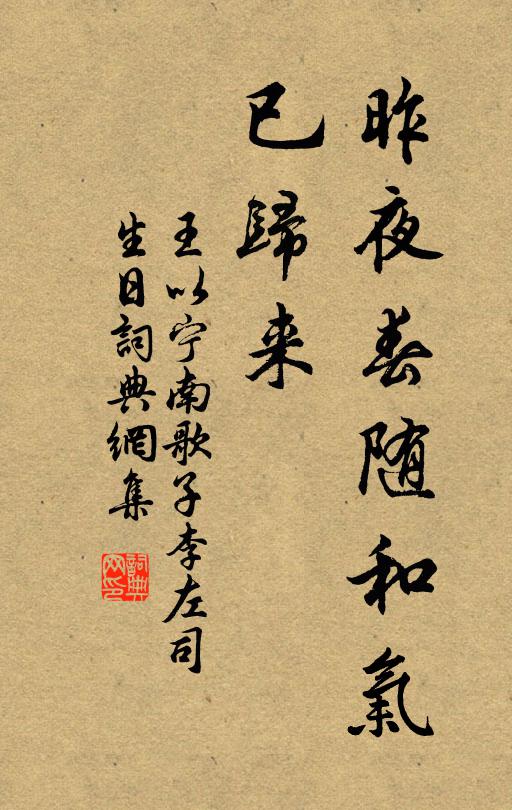 昨夜春随和氣
已歸来
王以宁南歌子李左司
生日詞典網集
詞典网印